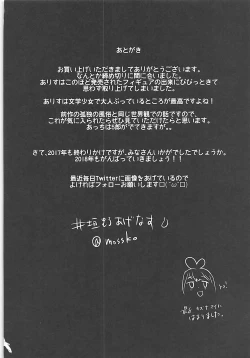 あとがき
お買い上げいただきましてありがとうございます。
なんとか締め切りに間に合いました。
ありすはこのほど発売されたフィギュアの出来にびびっときて
思わず取り上げてしまいました。
ありすは文学少女で大人ぶっているところが最高ですよね！
前作の孤独の風俗と同じ世界観での話ですので、
これが気に入られたらぜひ見ていただければ嬉しいです。
あっちは5部がでてきますが。。
さて、2017年も終わりかけですが、みなさんいかがでしたでしょうか。
2018年もがんばっていきましょう！！
最近毎日Twitterに画像をあげているので
よければフォローお願いします□(´ω`□)
@mossko
はまりました。